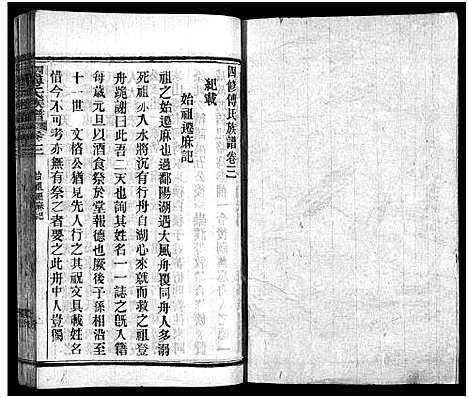 四修傅氏族譜卷三
紀載
始祖遷麻記
祖之始遷麻也過鄱陽湖遇大風舟覆同舟人多溺
死祖亦入水將沉有行舟自湖心來亟而救之祖登
舟跪謝曰此吾二天也詢其姓名一一誌之旣入籍
每歲元旦以酒食祭於堂報德也厥後子孫相沿至
十一世 文恪公猶見先人行之其祝文具載姓名
惜今不可考亦無有祭之者要之此舟中人豈偶
始祖遷麻記